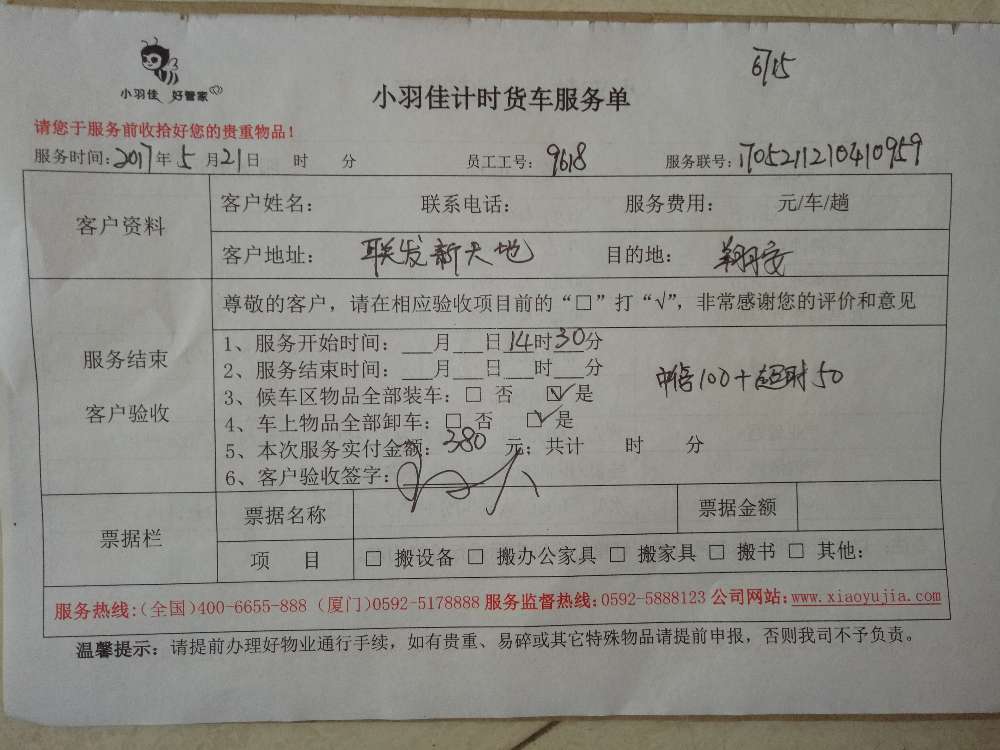 6/15
小羽佳 好管家
小羽佳计时货车服务单
请您于服务前收拾好您的贵重物品！
服务时间：2017年5月21日 时 分 员工工号：9618 服务联号：1705211210410959
客户资料
客户姓名： 联系电话： 服务费用： 元/车/趟
客户地址：联发新天地 目的地：翔安
服务结束
客户验收
尊敬的客户，请在相应验收项目前的“□”打“√”，非常感谢您的评价和意见
1、服务开始时间：___月___日14时30分
2、服务结束时间：___月___日___时___分
3、候车区物品全部装车：□ 否 ☑是
4、车上物品全部卸车：□ 否 ☑是
5、本次服务实付金额：380 元；共计 时 分
6、客户验收签字：
100+超时50
票据栏
票据名称 票据金额
项 目 □ 搬设备 □ 搬办公家具 □ 搬家具 □ 搬书 □ 其他：
服务热线：（全国）400-6655-888（厦门）0592-5178888 服务监督热线：0592-5888123 公司网站：www.xiaoyujia.com
温馨提示：请提前办理好物业通行手续，如有贵重、易碎或其它特殊物品请提前申报，否则我司不予负责。